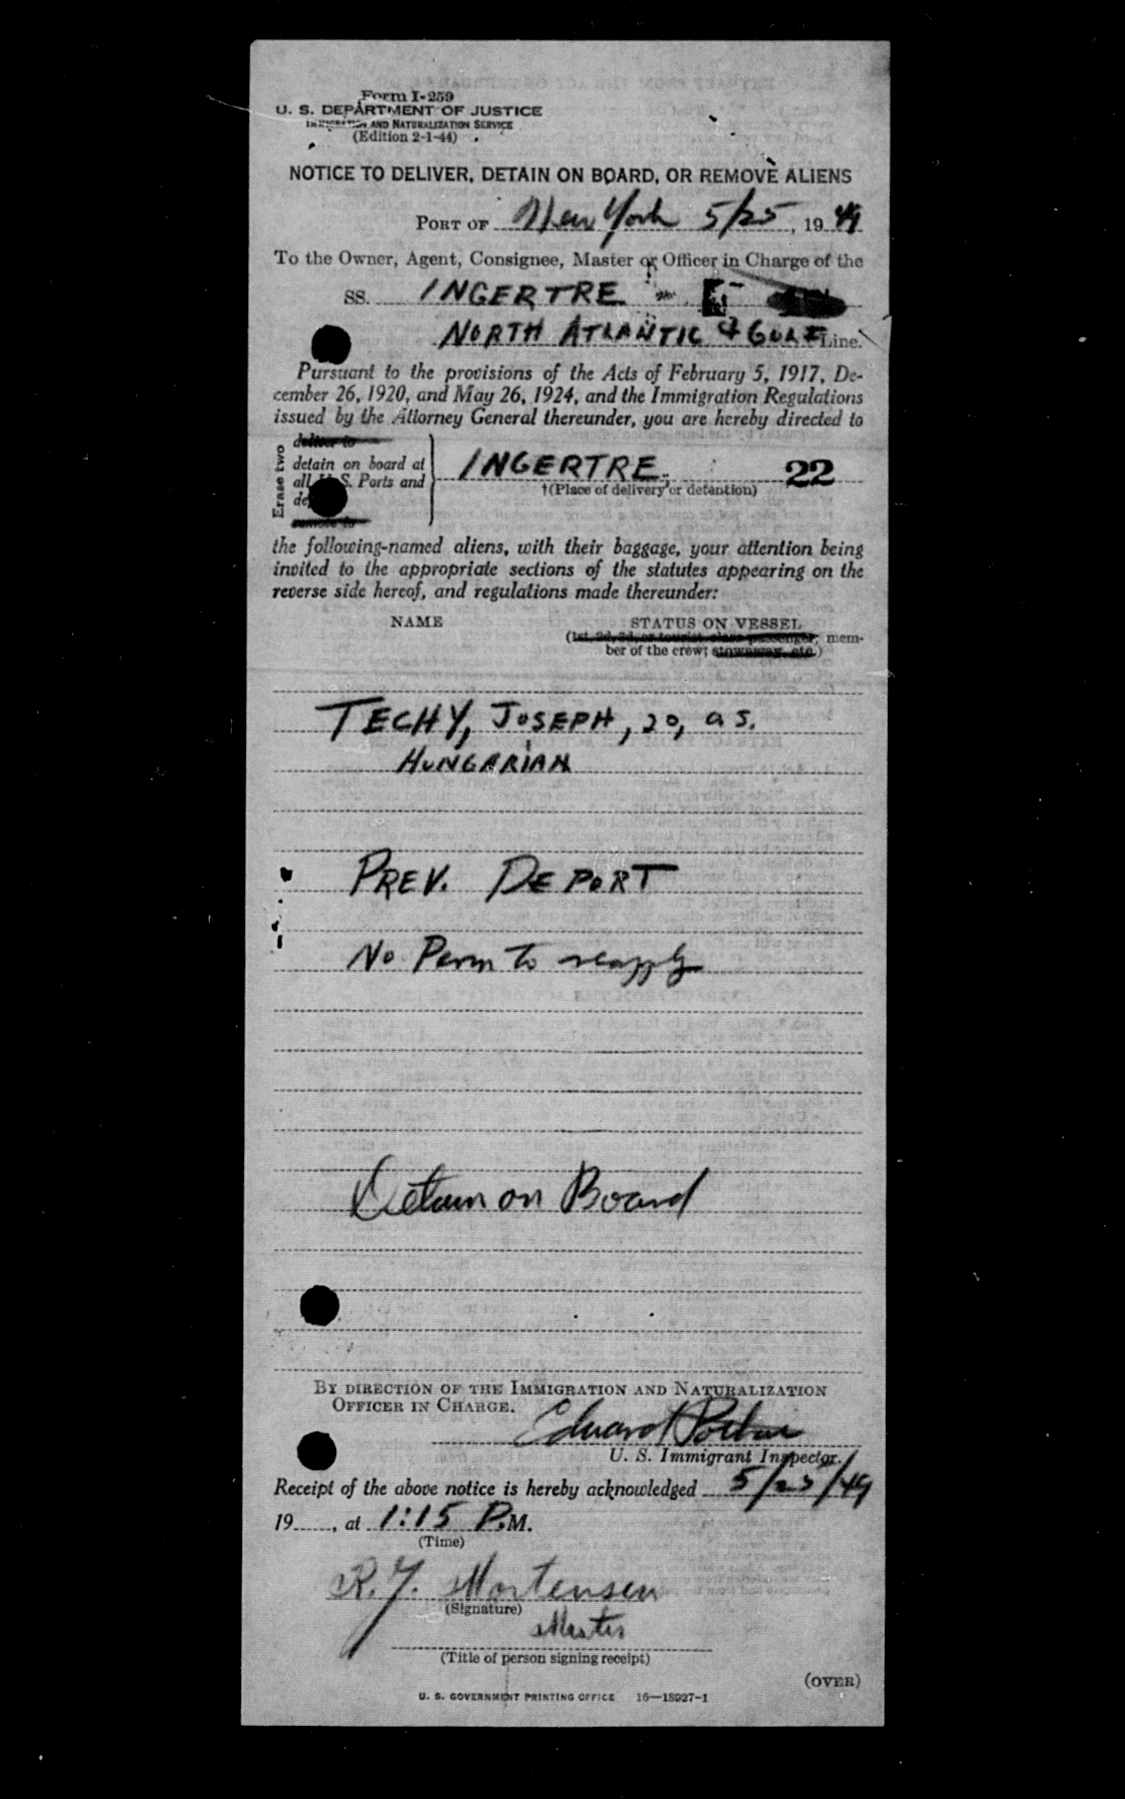 Form I-259
U. S. DEPARTMENT OF JUSTICE
IMMIGRATION AND NATURALIZATION SERVICE
(Edition 2-1-44)
NOTICE TO DELIVER, DETAIN ON BOARD, OR REMOVE ALIENS
PORT OF New York 5/25, 19 49
To the Owner, Agent, Consignee, Master or Officer in Charge of the
SS. INGERTRE
NORTH ATLANTIC & GULF Line.
Pursuant to the provisions of the Acts of February 5, 1917, De-
cember 26, 1920, and May 26, 1924, and the Immigration Regulations
issued by the Attorney General thereunder, you are hereby directed to
Erase two
deliver to
detain on board at
all U. S. Ports and
remove to
INGERTRE, 22
†(Place of delivery or detention)
the following-named aliens, with their baggage, your attention being
invited to the appropriate sections of the statutes appearing on the
reverse side hereof, and regulations made thereunder:
NAME STATUS ON VESSEL
(1st, 2d, 3d, or tourist class passenger, mem-
ber of the crew; stowaway, etc.)
TECHY, JOSEPH, 20, a s.
HUNGARIAN
PREV. DEPORT
No Perm to reapply
Detain on Board
BY DIRECTION OF THE IMMIGRATION AND NATURALIZATION
OFFICER IN CHARGE.
Edward
U. S. Immigrant Inspector.
Receipt of the above notice is hereby acknowledged 5/25/49
19......, at 1:15 P.M.
(Time)
R. J. Mortensen
(Signature)
Master
(Title of person signing receipt)
(OVER)
U. S. GOVERNMENT PRINTING OFFICE 16—18927-1